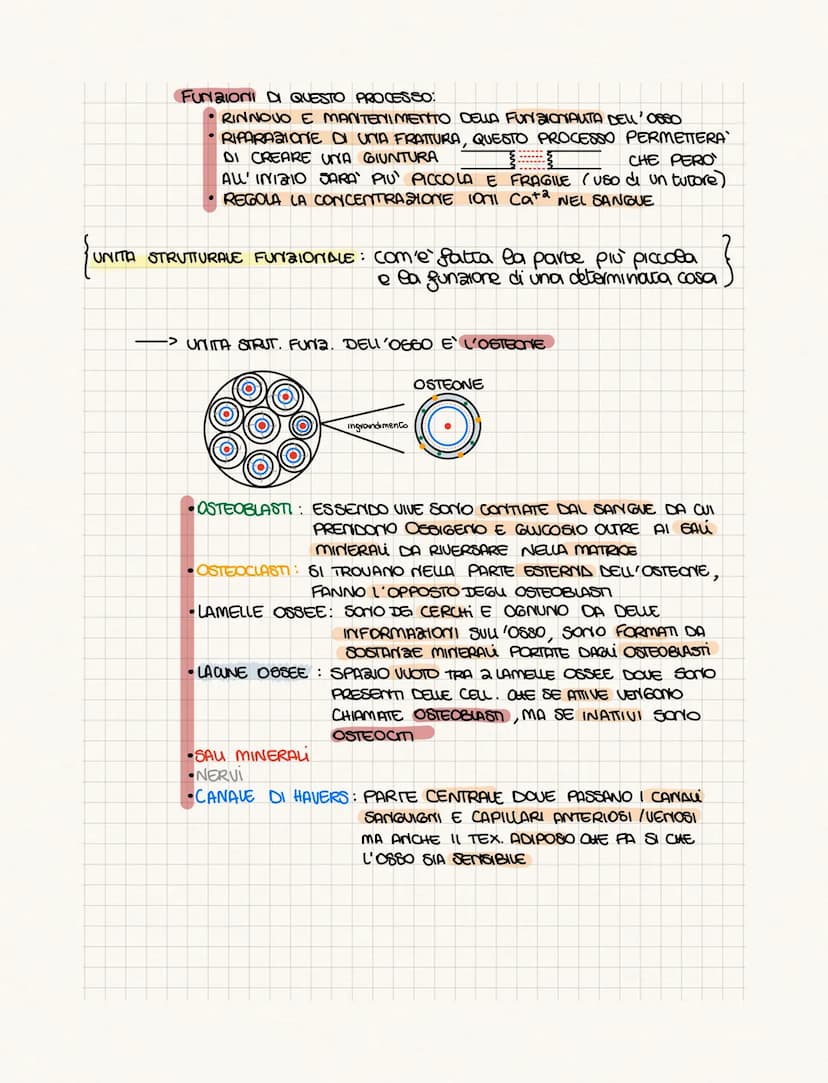 Funzioni DI QUESTO PROCESSO:
• RINNOVO E MANTENIMENTO DELLA FUNZIONALITA DELL'OSSO
• RIPARAZIONE DI UNA FRATTURA, QUESTO PROCESSO PERMETTERA'
DI CREARE UNA GIUNTURA CHE PERO'
ALL'INIZIO SARA' PIU' PICCOLA E FRAGILE (uso di un tutore)
• REGOLA LA CONCENTRAZIONE IONI Ca+2 NEL SANGUE
{UNITA STRUTTURALE FUNZIONALE: com'e' fatta la parte piu' piccola
e la funzione di una determinata cosa}
—> UNITA STRUT. FUNZ. DELL'OSSO E' L'OSTEONE
OSTEONE
ingrandimento
• OSTEOBLASTI: ESSENDO VIVE SONO CONTIATE DAL SANGUE DA CUI
PRENDONO OSSIGENO E GLUCOSIO OLTRE AI SALI
MINERALI DA RIVERSARE NELLA MATRICE
• OSTEOCLASTI: SI TROVANO NELLA PARTE ESTERNA DELL'OSTEONE,
FANNO L'OPPOSTO DEGLI OSTEOBLASTI
• LAMELLE OSSEE: SONO DEI CERCHI E OGNUNO DA DELLE
INFORMAZIONI SULL'OSSO, SONO FORMATI DA
SOSTANZE MINERALI PORTATE DAGLI OSTEOBLASTI
• LACUNE OSSEE: SPAZIO VUOTO TRA 2 LAMELLE OSSEE DOVE SONO
PRESENTI DELLE CELL. CHE SE ATTIVE VENGONO
CHIAMATE OSTEOBLASTI, MA SE INATTIVI SONO
OSTEOCITI
• SALI MINERALI
• NERVI
• CANALE DI HAVERS: PARTE CENTRALE DOVE PASSANO I CANALI
SANGUIGNI E CAPILLARI ANTERIOSI/VENOSI
MA ANCHE IL TEX. ADIPOSO CHE FA SI CHE
L'OSSO SIA SENSIBILE